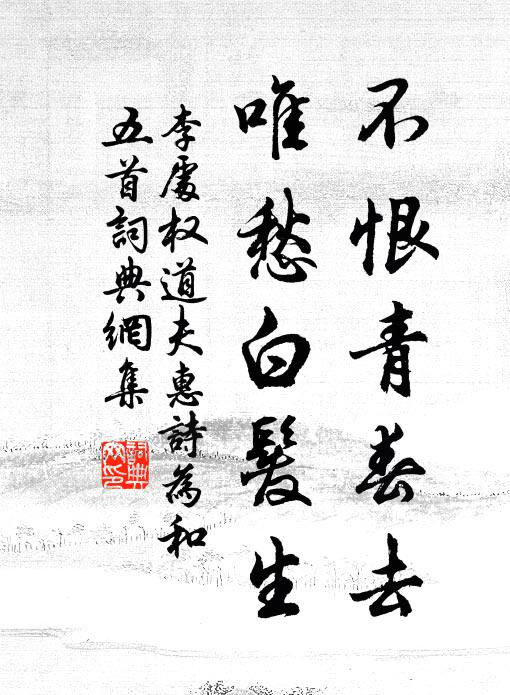 不恨青春去
唯愁白髮生
李處权道夫惠詩為和
五首詞典網集
詞典